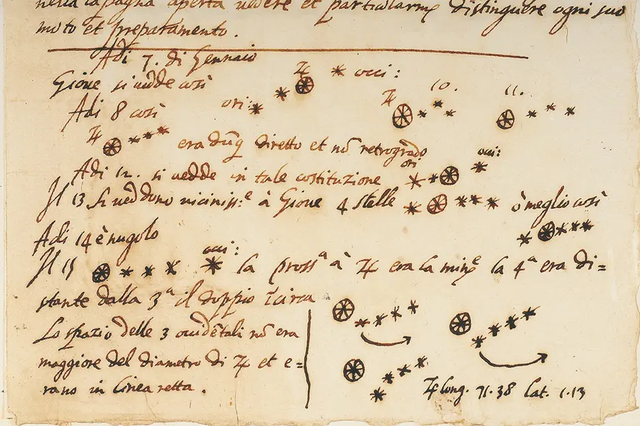 nella pagina aperta vedere et particularmẽ distinguere ogni suo
moto et preparamento.
Adi 7. di Gennaio
Gioue si uedde cosi ori: ♃ occi:
Adi 8 cosi ♃ 10. 11.
♃ era dũq diretto et nõ retrogrado
Adi 12. si uedde in tale costituzione ori occi:
Il 13 si ueddono viciniss.e à Gioue 4 stelle ò meglio cosi
Adi 14 è nugolo
Il 15 occi: la pross.a à ♃ era la min.e la 4.a era di=
stante dalla 3.a il doppio
Lo spazio delle 3 occidẽtali nõ era
maggiore del diametro di ♃ et e=
rano in linea retta.
♃ long. 71.38 lat. 1.13